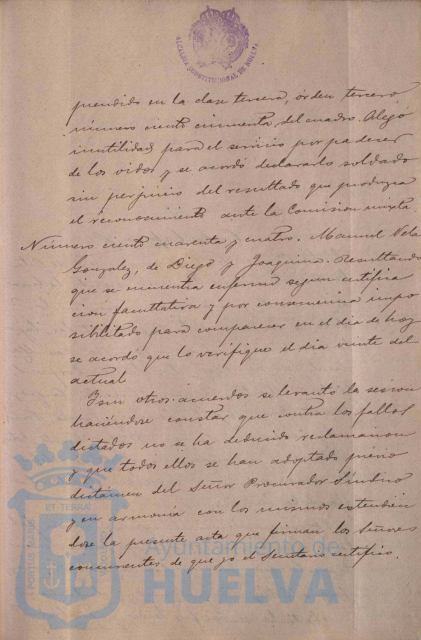 ALCALDIA CONSTITUCIONAL DE HUELVA
prendido en la clase tercera, órden tercero,
número ciento cincuenta del cuadro. Alegó
inutilidad para el servicio por padecer
de los oidos y se acordó declararlo soldado
sin perjuicio del resultado que produzca
el reconocimiento ante la Comision mixta.
Número ciento cuarenta y cuatro. Manuel Vela
Gonzalez, de Diego y Joaquina. Resultando
que se encuentra enfermo segun certifica
cion facultativa y por consecuencia impo
sibilitado para comparecer en el dia de hoy
se acordó que lo verifique el dia veinte del
actual
Y sin otros acuerdos se levantó la sesion
haciéndose constar que contra los fallos
dictados no se ha deducido reclamacion
y que todos ellos se han adoptado previo
dictamen del Señor Procurador Síndico
y en armonía con los mismos extendién
dose la presente acta que firman los Señores
concurrentes de que yo el Secretario certifico.
PORTUS MARIS
ET TERRAE
Ayuntamiento de
HUELVA